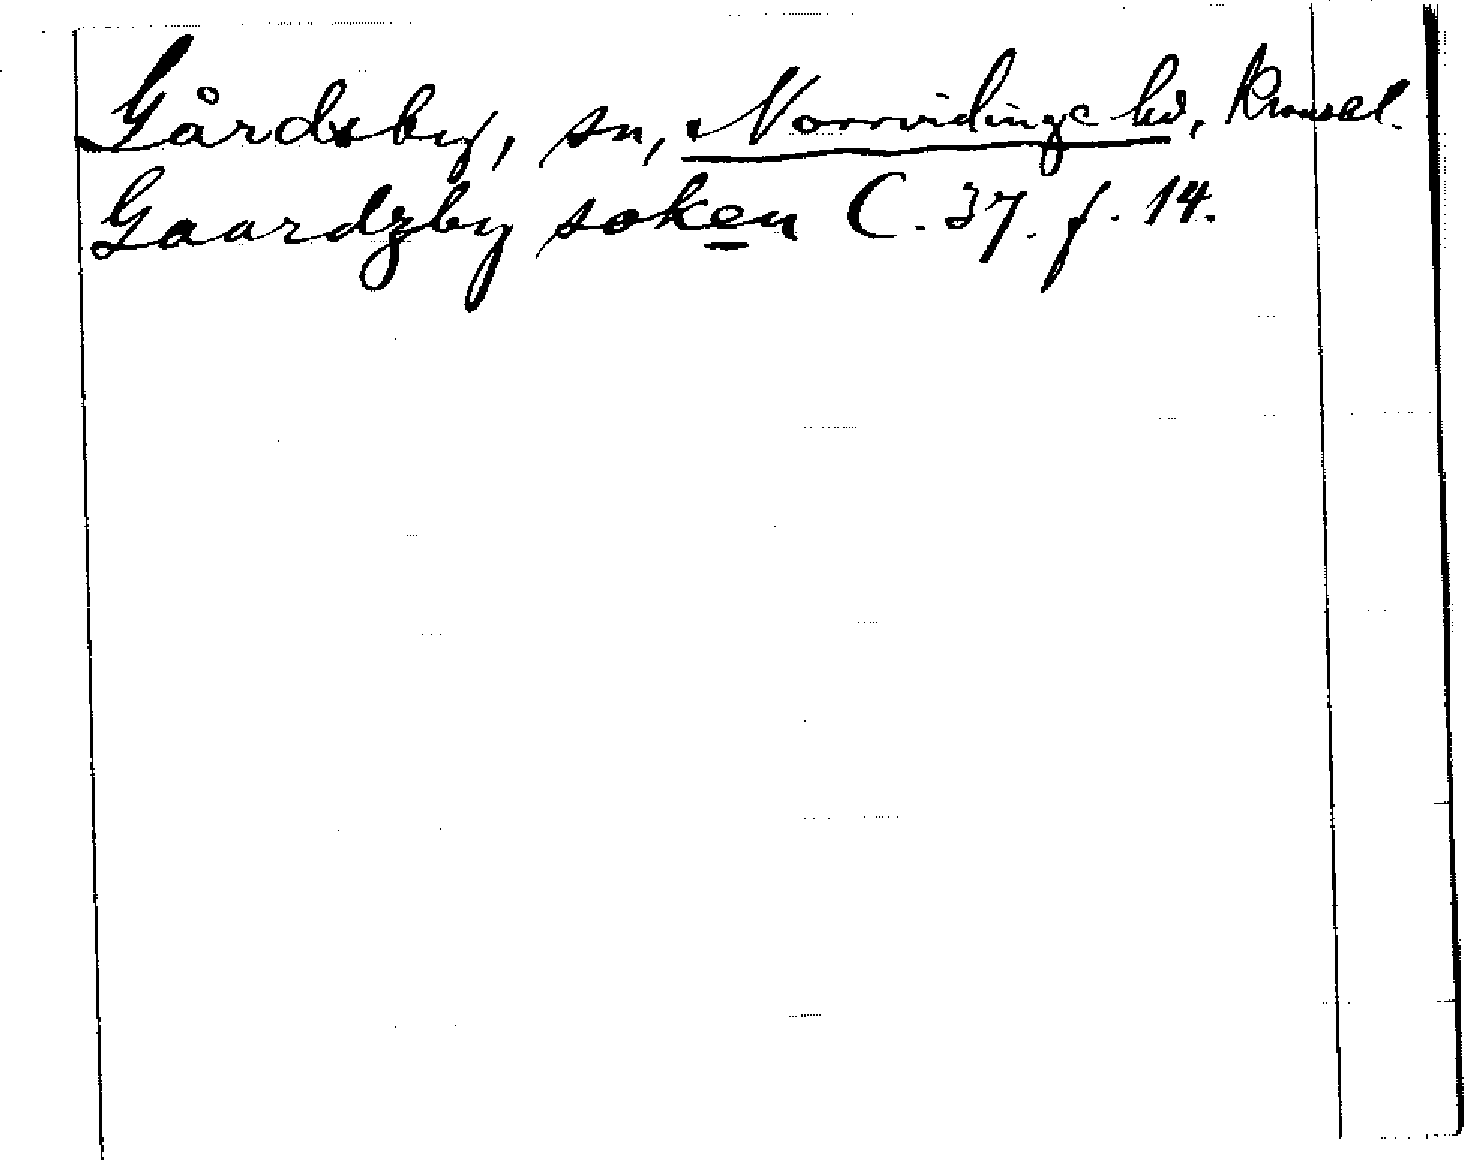 Gårdsby, sn, Norrvidinge hd, Kronob. l.
Gaardzby soken C. 37. f. 14.